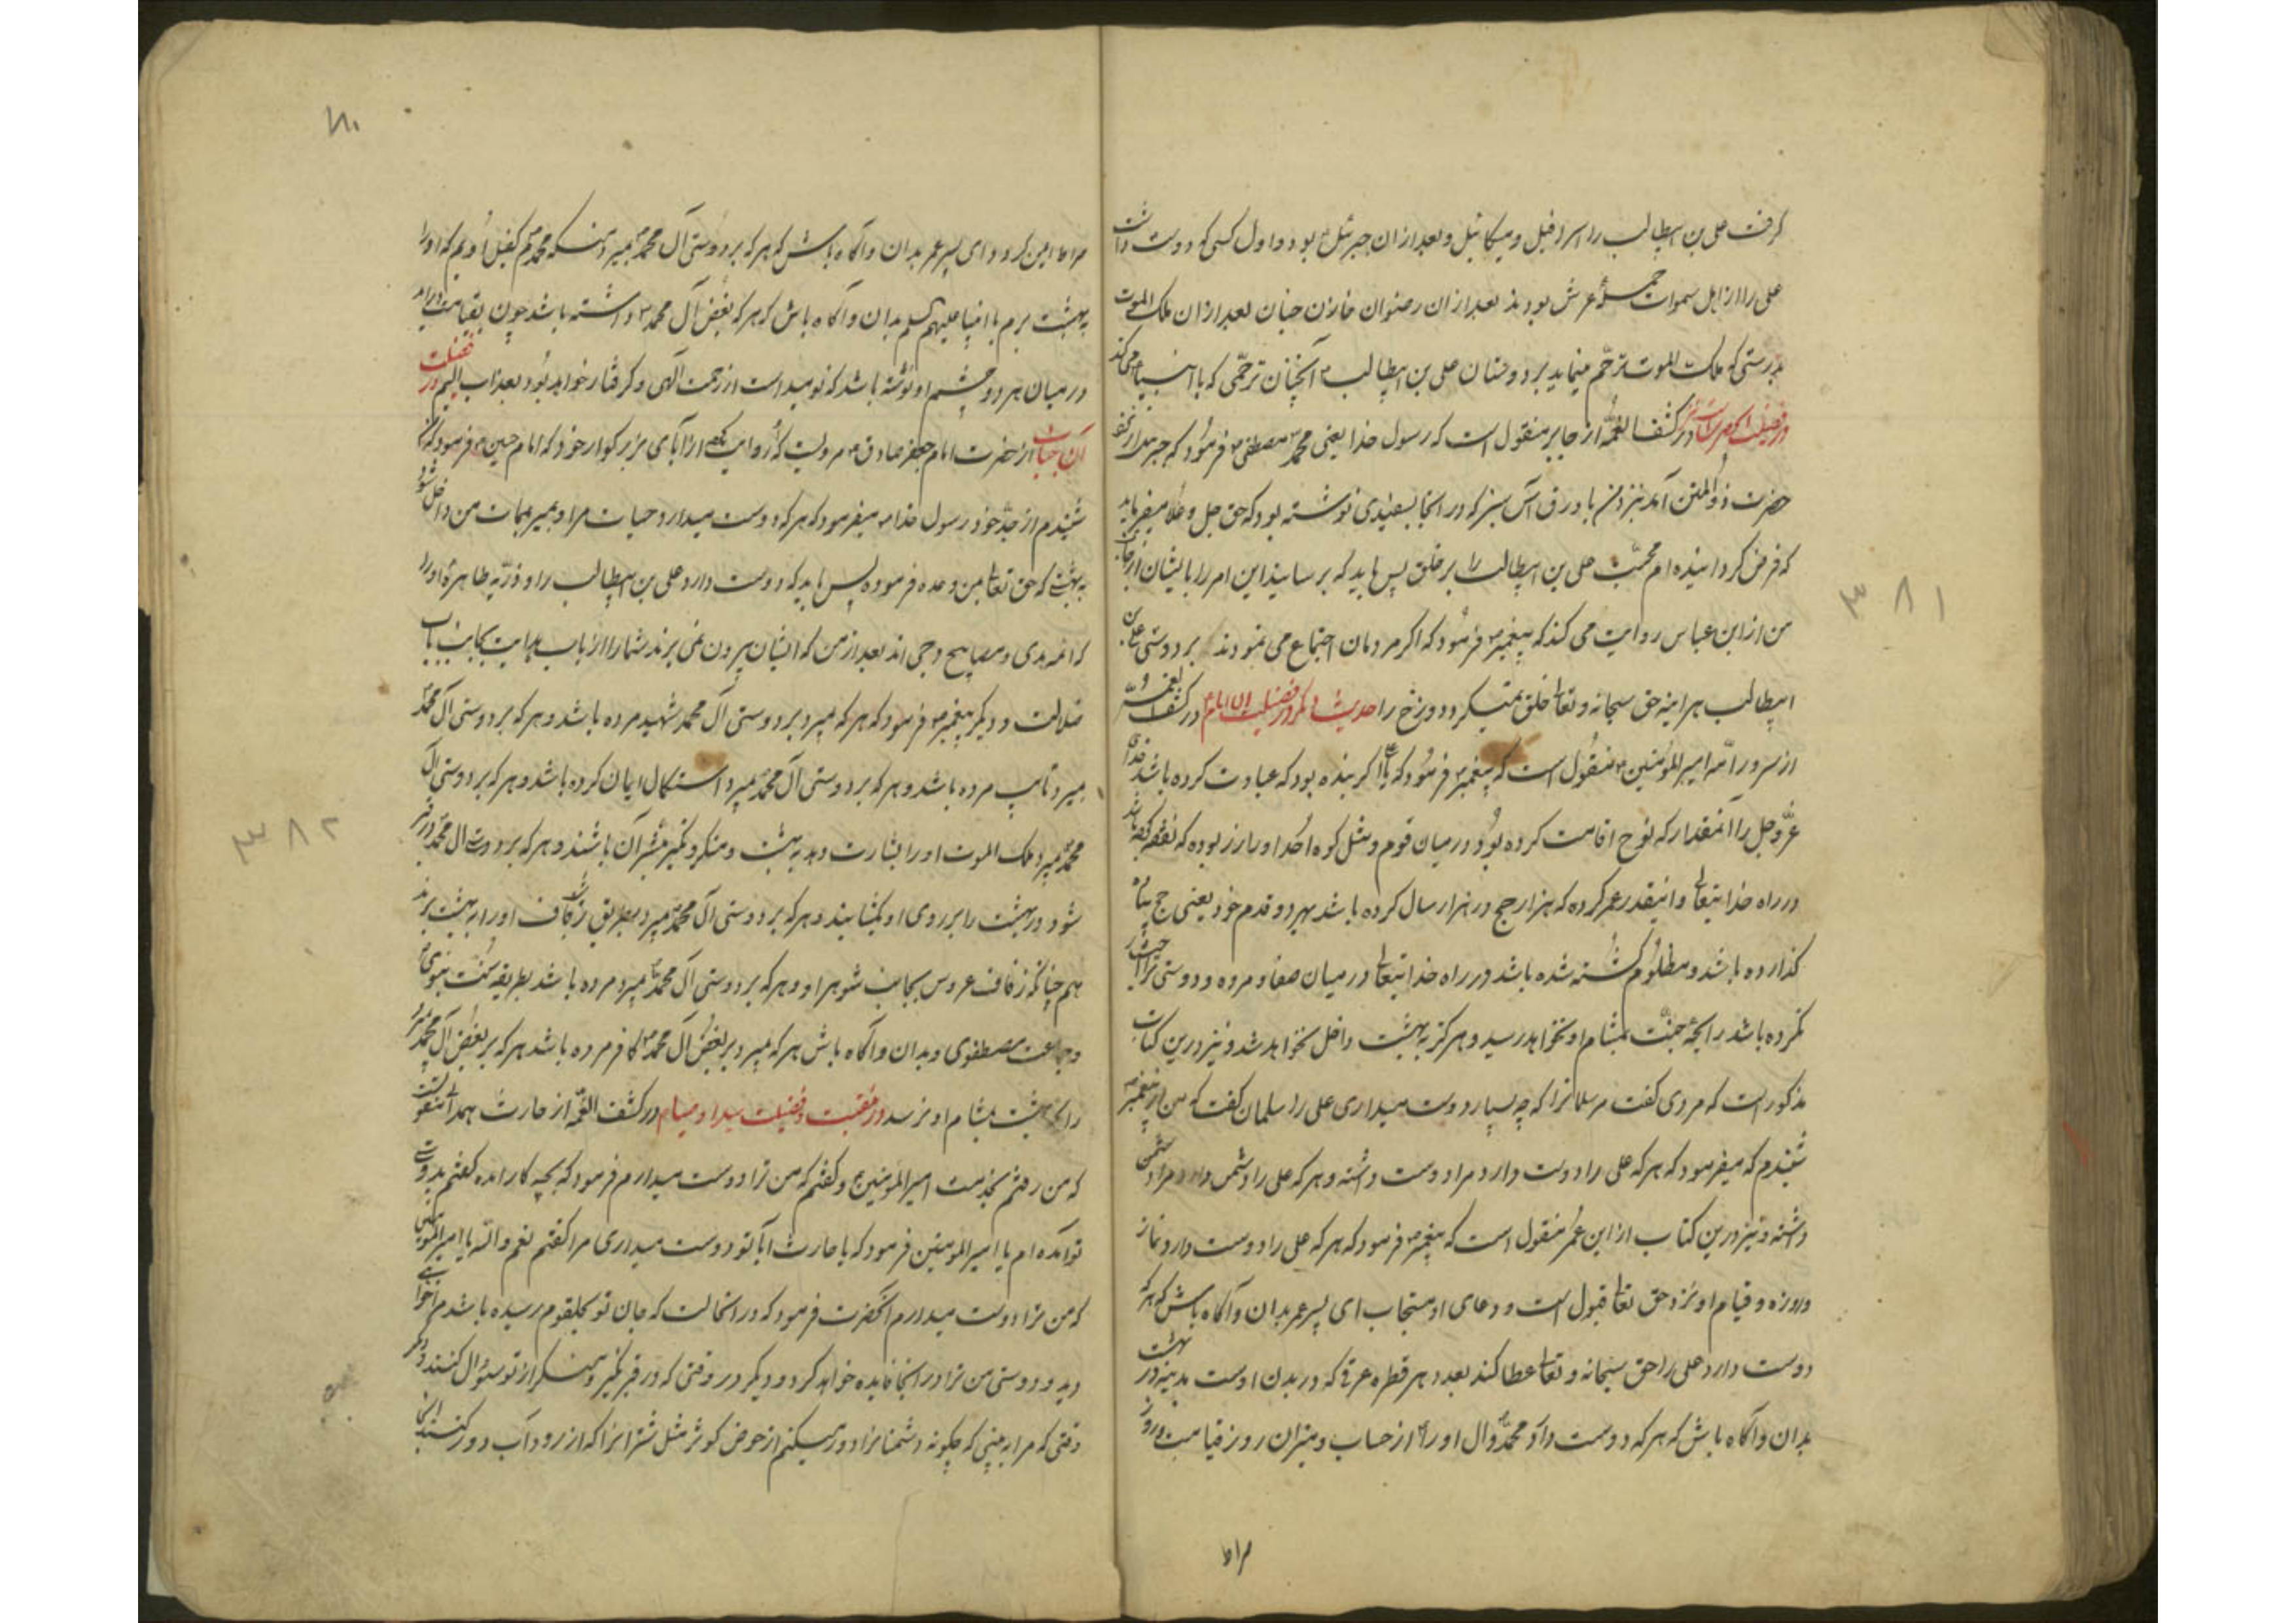 گرفت علی بن ابیطالب را اسرافیل و میکائیل و بعد از ان جبرئیل بود و اول کسی که دوست داشت
علی را از اهل سموات حمله عرش بودند بعد از ان رضوان خازن جنان بعد از ان ملک الموت
بدرستی که ملک الموت ترحّم مینماید بر دوستان علی بن ابیطالب آنچنان ترحّمی که با انبیا می کند
در کشف الغمّه از جابر منقول است که رسول خدا یعنی محمد مصطفی فرمود که جبرئیل از نزد
حضرت ذوالمنن آمد نزد من با ورق آس سبز که در انجا بسفیدی نوشته بود که حق جل و علا میفرماید
که فرض کردانیده ام محبّت علی بن ابیطالب را بر خلق پس باید که برسانید این امر را بایشان از جانب
من از ابن عباس روایت می کند که پیغمبر فرمود که اکر مردمان اجتماع می نمودند بر دوستی علی بن
ابیطالب هر اینه حق سبحانه و تعالی خلق نمیکرد دوزخ را حدیث دیگر در فضیلت ان امام در کشف الغمه
از سرور امیر المؤمنین منقول است که پیغمبر فرمود که یا علی اکر بنده بود که عبادت کرده باشد خدای
عزّ وجل را آنمقدار که نوح اقامت کرده بود در میان قوم و مثل کوه احد او را زر بوده که نفقه کرده باشد
در راه خدایتعالی و انیقدر عمر کرده که هزار حج در هزار سال کرده باشد بهر دو قدم خود یعنی حج پیاده
گذارده باشد و مظلوم کشته شده باشد در راه خدایتعالی در میان صفا و مروه و دوستی ترا اختیار
نکرده باشد رایحه جنّت بمشام او نخواهد رسید و هرگز به بهشت داخل نخواهد شد و نیز درین کتاب
مذکور است که مردی گفت مر سلمانرا که چه بسیار دوست میداری علی را سلمان گفت که من از پیغمبر
شنیدم که میفرمود که هر که علی را دوست دارد مرا دوست داشته و هر که علی را دشمن دارد مرا دشمن
داشته و نیز درین کتاب از ابن عمر منقول است که پیغمبر فرمود که هر که علی را دوست دارد نماز
و روزه و قیام او نزد حق تعالی قبول است و دعای او مستجاب ای پسر عمر بدان و آگاه باش که هر که
دوست دارد علی را حق سبحانه و تعالی عطا کند بعدد هر قطره عرقی که در بدن اوست مدینه در بهشت
بدان و آگاه باش که هر که دوست دارد محمد و آل او را از حساب و میزان روز قیامت و روز
۳۸۱
مرا عا
۳۸۲
مرا ما امین کردد ای پسر عمر بدان و آگاه باش که هر که بر دوستی آل محمد بمیرد منکه محمدم کفیل اویم که او را
به بهشت برم با انبیا علیهم السلم بدان و آگاه باش که هر که بغض آل محمد داشته باشد چون بقیامت در اید
در میان هر دو چشم او نوشته باشد که نومید است از رحمت الهی و گرفتار خواهد بود بعذاب الیم در فضیلت
آن جناب از حضرت امام جعفر صادق مرویست که روایت کرده از آبای بزرگوار خود که امام حسین فرمود که
شنیدم از جدّ خود رسول خدا میفرمود که هر که دوست میدارد حیات مرا و بمیرد بممات من داخل شود
به بهشتی که حق تعالی بمن وعده فرموده پس باید که دوست دارد علی بن ابیطالب را و ذرّیه طاهره او را
که ائمه هدی و مصابیح دجی اند بعد از من که ایشان بیرون نمی برند شما را از باب هدایت بجانب باب
ضلالت و دیگر پیغمبر فرمود که هر که بمیرد بر دوستی آل محمد شهید مرده باشد و هر که بر دوستی آل محمد
بمیرد تایب مرده باشد و هر که بر دوستی آل محمد بمیرد استکمال ایمان کرده باشد و هر که بر دوستی آل
محمد بمیرد ملک الموت او را بشارت دهد به بهشت و منکر و نکیر مبشر آن باشند و هر که بر دوستی ال محمد در قبر
شود در بهشت را بر روی او بکشایند و هر که بر دوستی آل محمد بمیرد بطریق زفاف او را به بهشت برند
هم چنانکه زفاف عروس بجانب شوهر او و هر که بر دوستی آل محمد بمیرد مرده باشد بطریقه سنّت نبوی
و جماعت مصطفوی و بدان و آگاه باش هر که بمیرد بر بغض آل محمد کافر مرده باشد هر که بر بغض آل محمد مرد
رایحه بهشت بمشام او نرسد در منقبت و فضیلت سید اوصیا در کشف الغمّه از حارث همدانی منقولست
که من رفتم بخدمت امیر المؤمنین و گفتم که من ترا دوست میدارم فرمود که بچه کار امده گفتم بدوستی
تو آمده ام یا امیر المومنین فرمود که یا حارث ایا تو دوست میداری مرا گفتم نعم والله یا امیر المومنین
که من ترا دوست میدارم انحضرت فرمود که در انحالت که جان تو بحلقوم رسیده باشد مرا خواهی
دید و دوستی من ترا در انجا فایده خواهد کرد و دیگر در وقتی که در قبر نکیر و منکر از تو سئوال کنند و دیگر
وقتی که مرا به بینی که چگونه دشمنانرا دور میکنم از حوض کوثر مثل شترانرا که از رود آب دور کنند